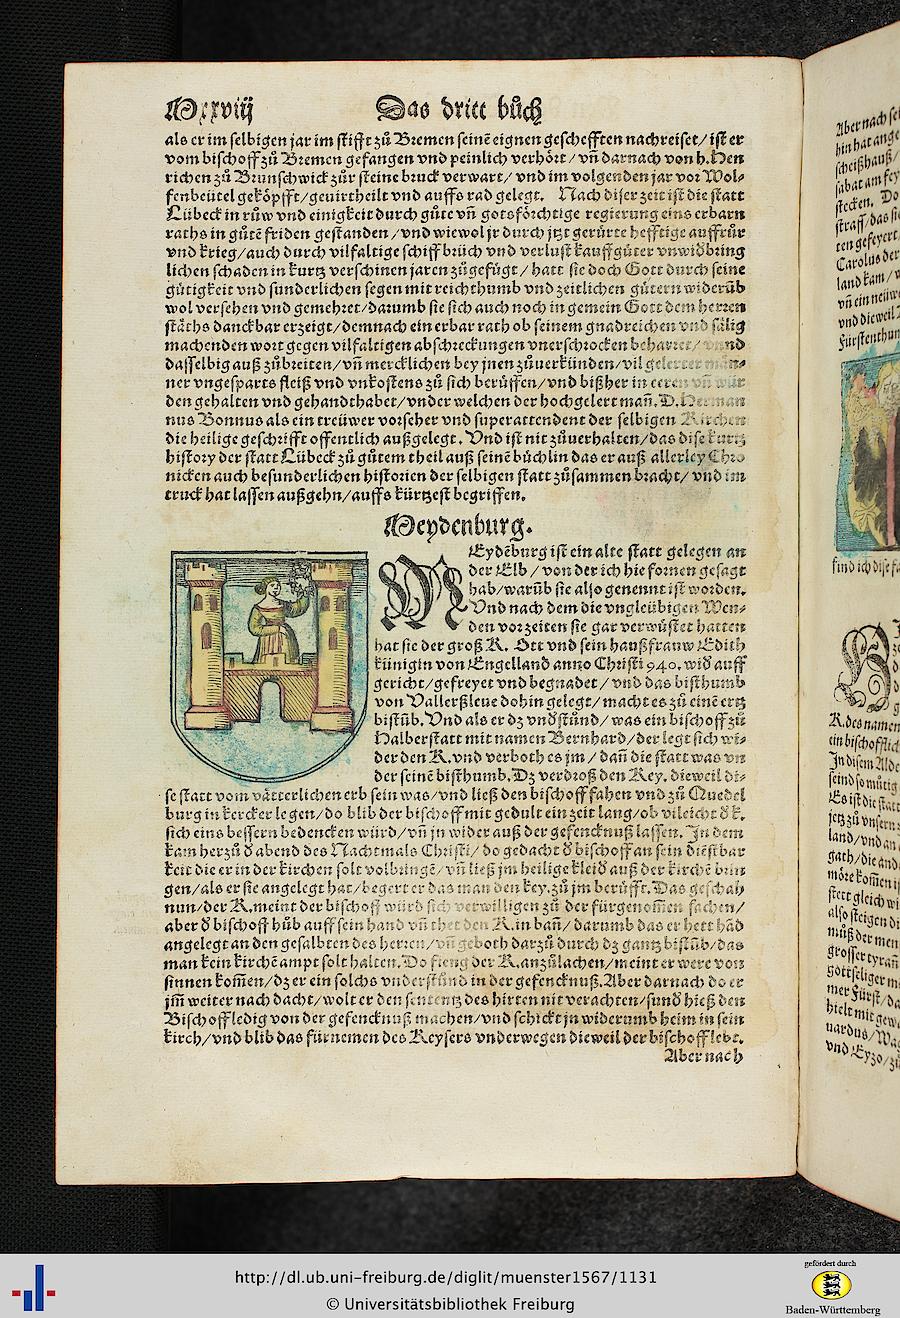 Mxxviij Das dritt bůch
als er im selbigen jar im stifft zů Bremen seinē eignen geschefften nachreiset/ ist er
vom bischoff zů Bremen gefangen vnd peinlich verhört/ vn̄ darnach von h. Hen
richen zů Brunschwick zůr steine bruck verwart/ vnd im volgenden jar vor Wol-
fenbeütel geköpfft/ geuirtheilt vnd auffs rad gelegt. Nach diser zeit ist die statt
Lübeck in růw vnd einigkeit durch gůte vn̄ gotsförchtige regierung eins erbarn
raths in gůtē friden gestanden/ vnd wiewol jr durch jtzt gerürte hefftige auffrůr
vnd krieg/ auch durch vilfaltige schiffbrüch vnd verlust kauffgüter vnwidbring
lichen schaden in kurtz verschinen jaren zůgefügt/ hatt sie doch Gott durch seine
gütigkeit vnd sunderlichen segen mit reichthumb vnd zeitlichen gütern widerūb
wol versehen vnd gemehret/ darumb sie sich auch noch in gemein Gott dem herren
stäths danckbar erzeigt/ demnach ein erbar rath ob seinem gnadreichen vnd sälig
machenden wort gegen vilfaltigen abschreckungen vnerschrocken beharret/ vnnd
dasselbig auß zůbreiten/ vn̄ mercklichen bey jnen zůuerkünden/ vil gelerter män-
ner vngesparts fleiß vnd vnkostens zů sich berůffen/ vnd bißher in eeren vn̄ wür
den gehalten vnd gehandthabet/ vnder welchen der hochgelert man̄. D. Herman
nus Bonnus als ein treüwer vorscher vnd superattendent der selbigen Kirchen
die heilige geschrifft offentlich außgelegt. Vnd ist nit zůuerhalten/ das dise kurtz
history der statt Lübeck zů gůtem theil auß seinē bůchlin das er auß allerley Chro
nicken auch besunderlichen historien der selbigen statt zůsammen bracht/ vnd im
truck hat lassen außgehn/ auffs kürtzest begriffen.
Meydenburg.
MEydēburg ist ein alte statt gelegen an
der Elb/ von der ich hie fornen gesagt
hab/ warūb sie also genennt ist worden.
Vnd nach dem die vngleübigen Wen-
den vorzeiten sie gar verwůstet hatten
hat sie der groß K. Ott vnd sein haußfrauw Edith
künigin von Engelland anno Christi 940. wid auff
gericht/ gefreyet vnd begnadet/ vnd das bisthumb
von Vallerßleue dohin gelegt/ macht es zů einē ertz
bistūb. Vnd als er dz vnd̄stůnd/ was ein bischoff zů
Halberstatt mit namen Bernhard/ der legt sich wi-
der den K. vnd verboth es jm/ dan̄ die statt was vn
der seinē bisthumb. Dz verdroß den Key. dieweil di-
se statt vom vätterlichen erb sein was/ vnd ließ den bischoff fahen vnd zů Quedel
burg in kercker legen/ do blib der bischoff mit gedult ein zeit lang/ ob vileicht d̄ k.
sich eins bessern bedencken würd/ vn̄ jn wider auß der gefencknuß lassen. In dem
kam herzů d̄ abend des Nachtmals Christi/ do gedacht d̄ bischoff an sein diēstbar
keit die er in der kirchen solt volbringē/ vn̄ ließ jm heilige kleid auß der kirchē brin
gen/ als er sie angelegt hat/ begert er das man den key. zů jm berůfft. Das geschah
nun/ der K. meint der bischoff würd sich verwilligen zů der fürgenom̄en sachen/
aber d̄ bischoff hůb auff sein hand vn̄ thet den K. in ban̄/ darumb das er hett hād
angelegt an den gesalbten des herren/ vn̄ geboth darzů durch dz gantz bistūb/ das
man kein kirchē ampt solt halten. Do fieng der K. anzůlachen/ meint er were von
sinnen kom̄en/ dz er ein solchs vnderstůnd in der gefencknuß. Aber darnach do er
jm̄ weiter nach dacht/ wolt er den sententz des hirten nit verachten/ sund̄ hieß den
Bischoff ledig von der gefencknuß machen/ vnd schickt jn widerumb heim in sein
kirch/ vnd blib das fürnemen des Keysers vnderwegen dieweil der bischoff lebt.
Aber nach
http://dl.ub.uni-freiburg.de/diglit/muenster1567/1131
© Universitätsbibliothek Freiburg
gefördert durch
Baden-Württemberg